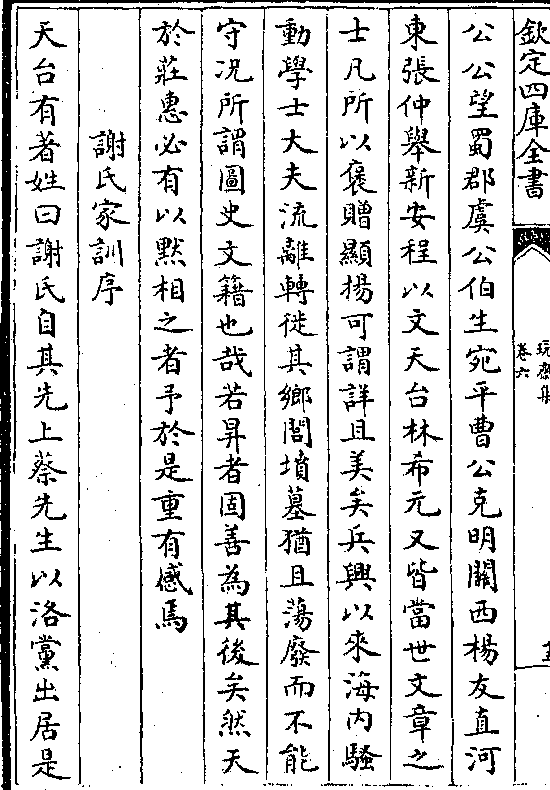 欽定四庫全書
玩齋集
卷六
公公望蜀郡虞公伯生宛平曹公克明關西楊友直河
東張仲舉新安程以文天台林希元又皆當世文章之
士凡所以褒贈顯揚可謂詳且美矣兵興以來海内騷
動學士大夫流離轉徙其鄉閭墳墓猶且蕩廢而不能
守况所謂圖史文籍也哉若昇者固善為其後矣然天
於莊惠必有以黙相之者予於是重有感焉
謝氏家訓序
天台有著姓曰謝氏自其先上蔡先生以洛黨出居是